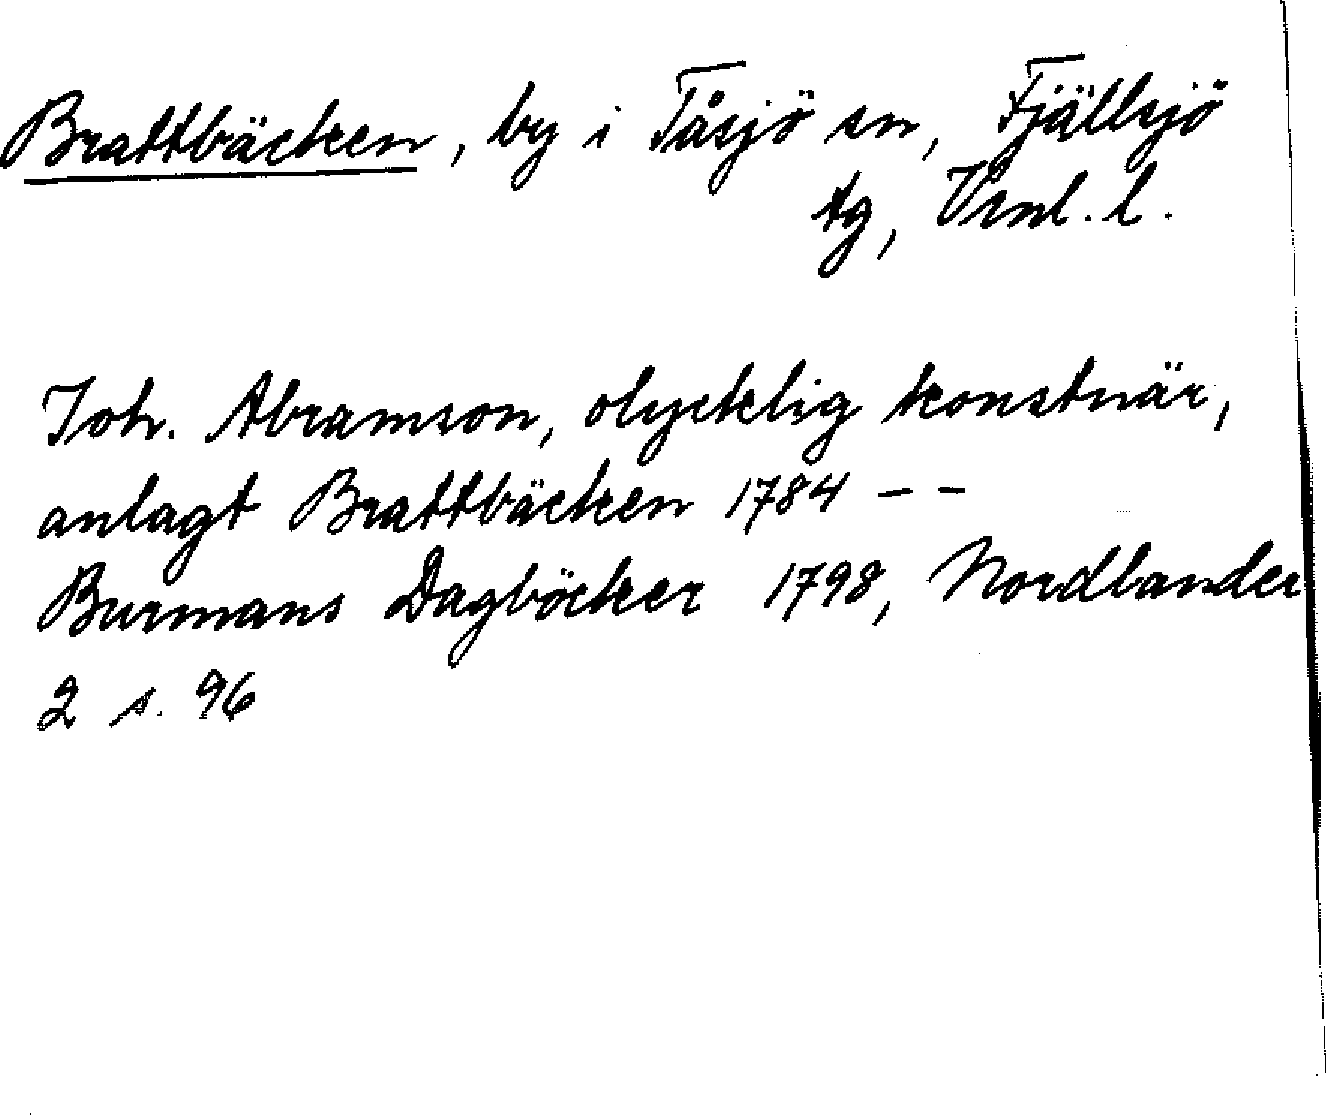 Brattbäcken, by i Tåsjö sn, Fjällsjö
tg, Vrnl. l.
Joh. Abramson, olycklig konstnär,
anlagt Brattbäcken 1784 – –
Burmans Dagböcker 1798, Nordlander
2 s. 96